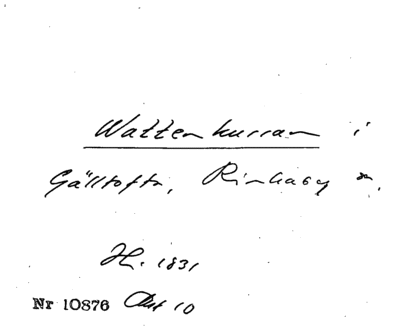 Wattenkurran i
Gälltofta, Rinkaby sn.
H. 1831
Nr 10876 Akt 10